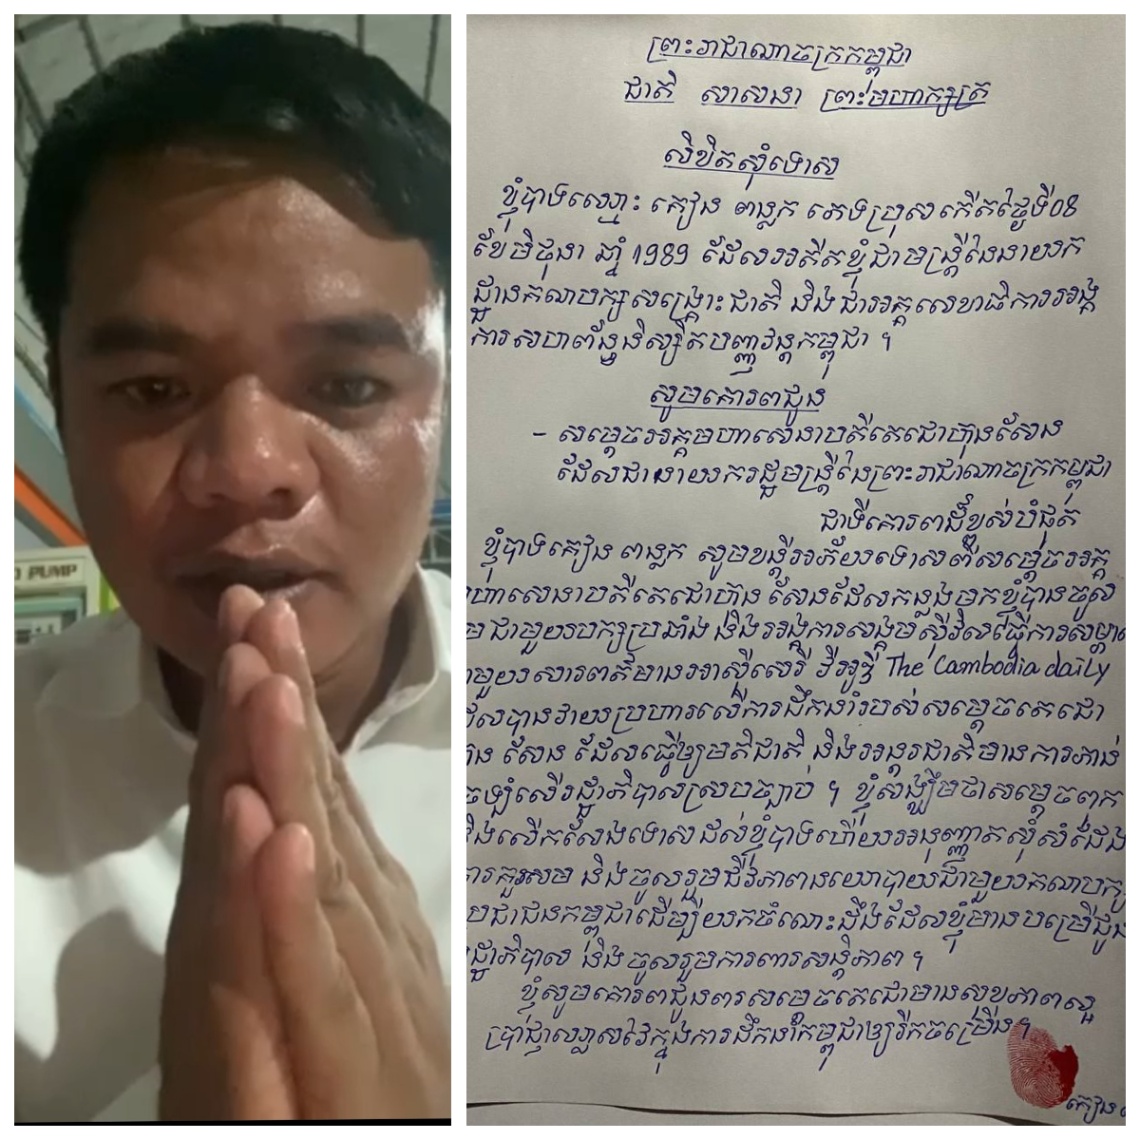 O PUMP
ព្រះរាជាណាចក្រកម្ពុជា
ជាតិ សាសនា ព្រះមហាក្សត្រ
លិខិតសុំទោស
ខ្ញុំបាទឈ្មោះ គឿន ពន្លក ភេទប្រុស កើតថ្ងៃទី08
ខែមិថុនា ឆ្នាំ 1989 ដែលអតីតខ្ញុំជាមន្ត្រីនៃនាយក
ដ្ឋានគណបក្សសង្គ្រោះជាតិ និងជាអគ្គលេខាធិការអង្គ
ការសហព័ន្ធនិស្សិតបញ្ញវន្តកម្ពុជា ។
សូមគោរពជូន
- សម្តេចអគ្គមហាសេនាបតីតេជោហ៊ុនសែន
ដែលជានាយករដ្ឋមន្ត្រីនៃព្រះរាជាណាចក្រកម្ពុជា
ជាទីគោរពដ៏ខ្ពស់បំផុត
ខ្ញុំបាទគឿន ពន្លក សូមខន្តីអភ័យទោសពីសម្តេចអគ្គ
ហាសេនាបតីតេជោហ៊ុន សែនដែលកន្លងមកខ្ញុំបានចូល
ជាមួយបក្សប្រឆាំង និងអង្គការសង្គមស៊ីវិលធ្វើការសម្ភា
មួយសារពត៌មានអាស៊ីសេរី វីអូឌី The Cambodia daily
បានវាយប្រហារលើការដឹកនាំរបស់សម្តេចតេជោ
សែន ដែលធ្វើឲ្យមតិជាតិ និងអន្តរជាតិមានការភាន់
ច្រឡំលើរដ្ឋាភិបាលស្របច្បាប់ ។ ខ្ញុំសង្ឃឹមថាសម្តេចពុក
និងលើកលែងទោសដល់ខ្ញុំបាទហើយអនុញ្ញាតសុំសំដែង
ការគួរសម និងចូលរួមជីវភាពនយោបាយជាមួយគណបក្ស
ប្រជាជនកម្ពុជាដើម្បីយកចំណេះដឹងដែលខ្ញុំមានបម្រើជូន
រដ្ឋាភិបាល និងចូលរួមការពារសន្តិភាព ។
ខ្ញុំសូមគោរពជូនពរសម្តេចតេជោមានសុខភាពល្អ
ប្រាជ្ញាឈ្លាសវៃក្នុងការដឹកនាំកម្ពុជាឲ្យរីកចម្រើន ។
គឿន